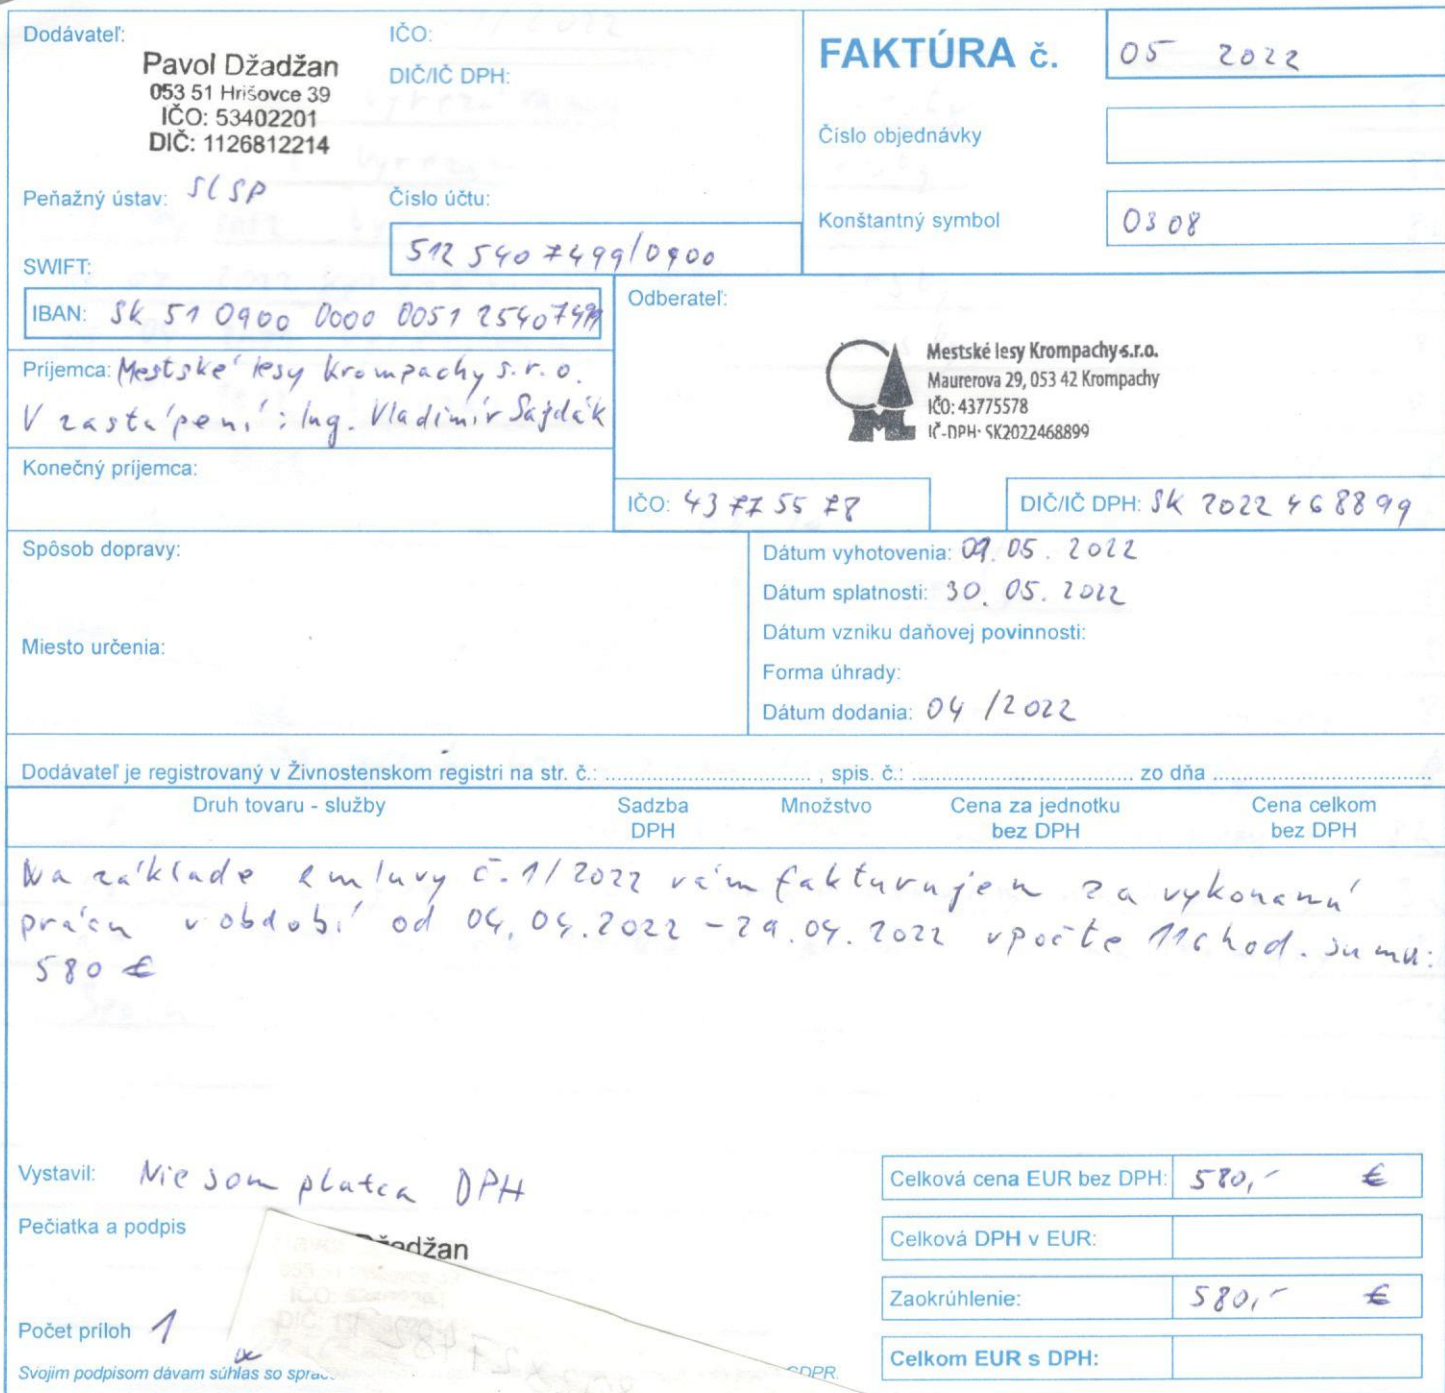 Dodávateľ:
Pavol Džadžan
053 51 Hrišovce 39
IČO: 53402201
DIČ: 1126812214
IČO:
DIČ/IČ DPH:
FAKTÚRA č. 05 2022
Číslo objednávky
Konštantný symbol 0308
Peňažný ústav: SLSP
Číslo účtu:
512 540 7499/0900
SWIFT:
IBAN: SK 51 0900 0000 0051 2540 7499
Príjemca: Mestské lesy Krompachy s.r.o.
V zastúpení: Ing. Vladimír Sajdák
Konečný príjemca:
Odberateľ:
Mestské lesy Krompachy s.r.o.
Maurerova 29, 053 42 Krompachy
IČO: 43775578
IČ-DPH: SK2022468899
IČO: 43 77 55 78
DIČ/IČ DPH: SK 2022 468899
Spôsob dopravy:
Miesto určenia:
Dátum vyhotovenia: 09.05.2022
Dátum splatnosti: 30.05.2022
Dátum vzniku daňovej povinnosti:
Forma úhrady:
Dátum dodania: 04/2022
Dodávateľ je registrovaný v Živnostenskom registri na str. č.: , spis. č.: zo dňa
Druh tovaru - služby
Sadzba DPH
Množstvo
Cena za jednotku bez DPH
Cena celkom bez DPH
Na základe zmluvy č. 1/2022 vám fakturujem za vykonanú
prácu v období od 04.04.2022 - 29.04.2022 vpočte 116 hod. sumu:
580 €
Vystavil: Nie som platca DPH
Pečiatka a podpis
Džadžan
Počet príloh 1
Svojim podpisom dávam súhlas so GDPR.
Celková cena EUR bez DPH: 580,- €
Celková DPH v EUR:
Zaokrúhlenie: 580,- €
Celkom EUR s DPH: